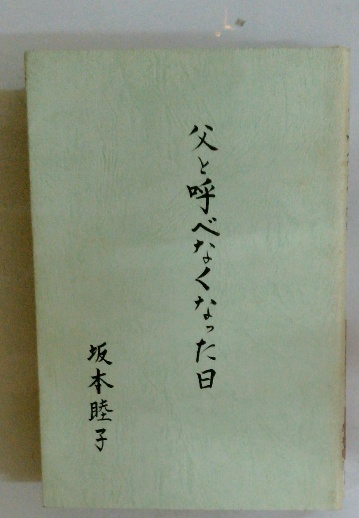 父と呼べなくなった日
坂本睦子